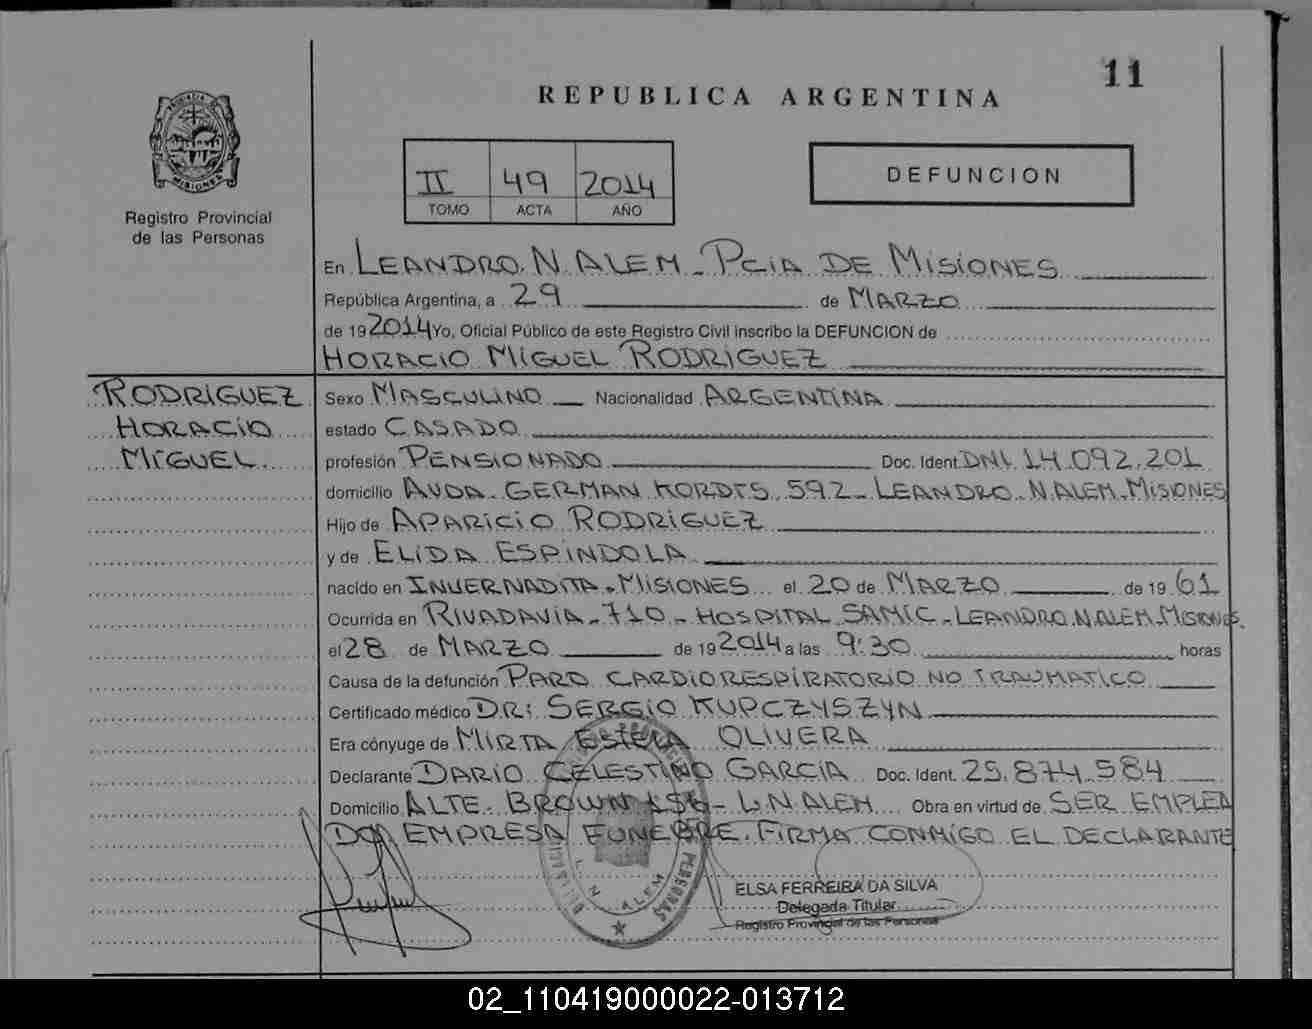 11
REPUBLICA ARGENTINA
PROVINCIA DE
MISIONES
Registro Provincial
de las Personas
II 49 2014
TOMO ACTA AÑO
DEFUNCION
En LEANDRO. N. ALEM - PCIA DE MISIONES
República Argentina, a 29 de MARZO
de 19 2014 Yo, Oficial Público de este Registro Civil inscribo la DEFUNCION de
HORACIO MIGUEL RODRIGUEZ
RODRIGUEZ
HORACIO
MIGUEL
Sexo MASCULINO Nacionalidad ARGENTINA
estado CASADO
profesión PENSIONADO Doc. Ident. DNI. 14.092.201
domicilio AVDA. GERMAN KORDTS 592 - LEANDRO. N. ALEM. MISIONES
Hijo de APARICIO RODRIGUEZ
y de ELIDA ESPINDOLA
nacido en INVERNADITA - MISIONES el 20 de MARZO de 19 61
Ocurrida en RIVADAVIA - 710 - HOSPITAL SAMIC - LEANDRO. N. ALEM - MISIONES.
el 28 de MARZO de 19 2014 a las 9:30 horas
Causa de la defunción PARO CARDIORESPIRATORIO NO TRAUMATICO
Certificado médico DR: SERGIO KUPCZYSZYN
Era cónyuge de MIRTA ESTELA OLIVERA
Declarante DARIO CELESTINO GARCIA Doc. Ident. 25.874.584
Domicilio ALTE. BROWN - L. N. ALEM Obra en virtud de SER EMPLEA
DO EMPRESA FUNEBRE. FIRMA CONMIGO EL DECLARANTE
L. N. ALEM
PERSONAS
ELSA FERREIRA DA SILVA
Delegada Titular
Registro Provincial de las Personas
02_110419000022-013712